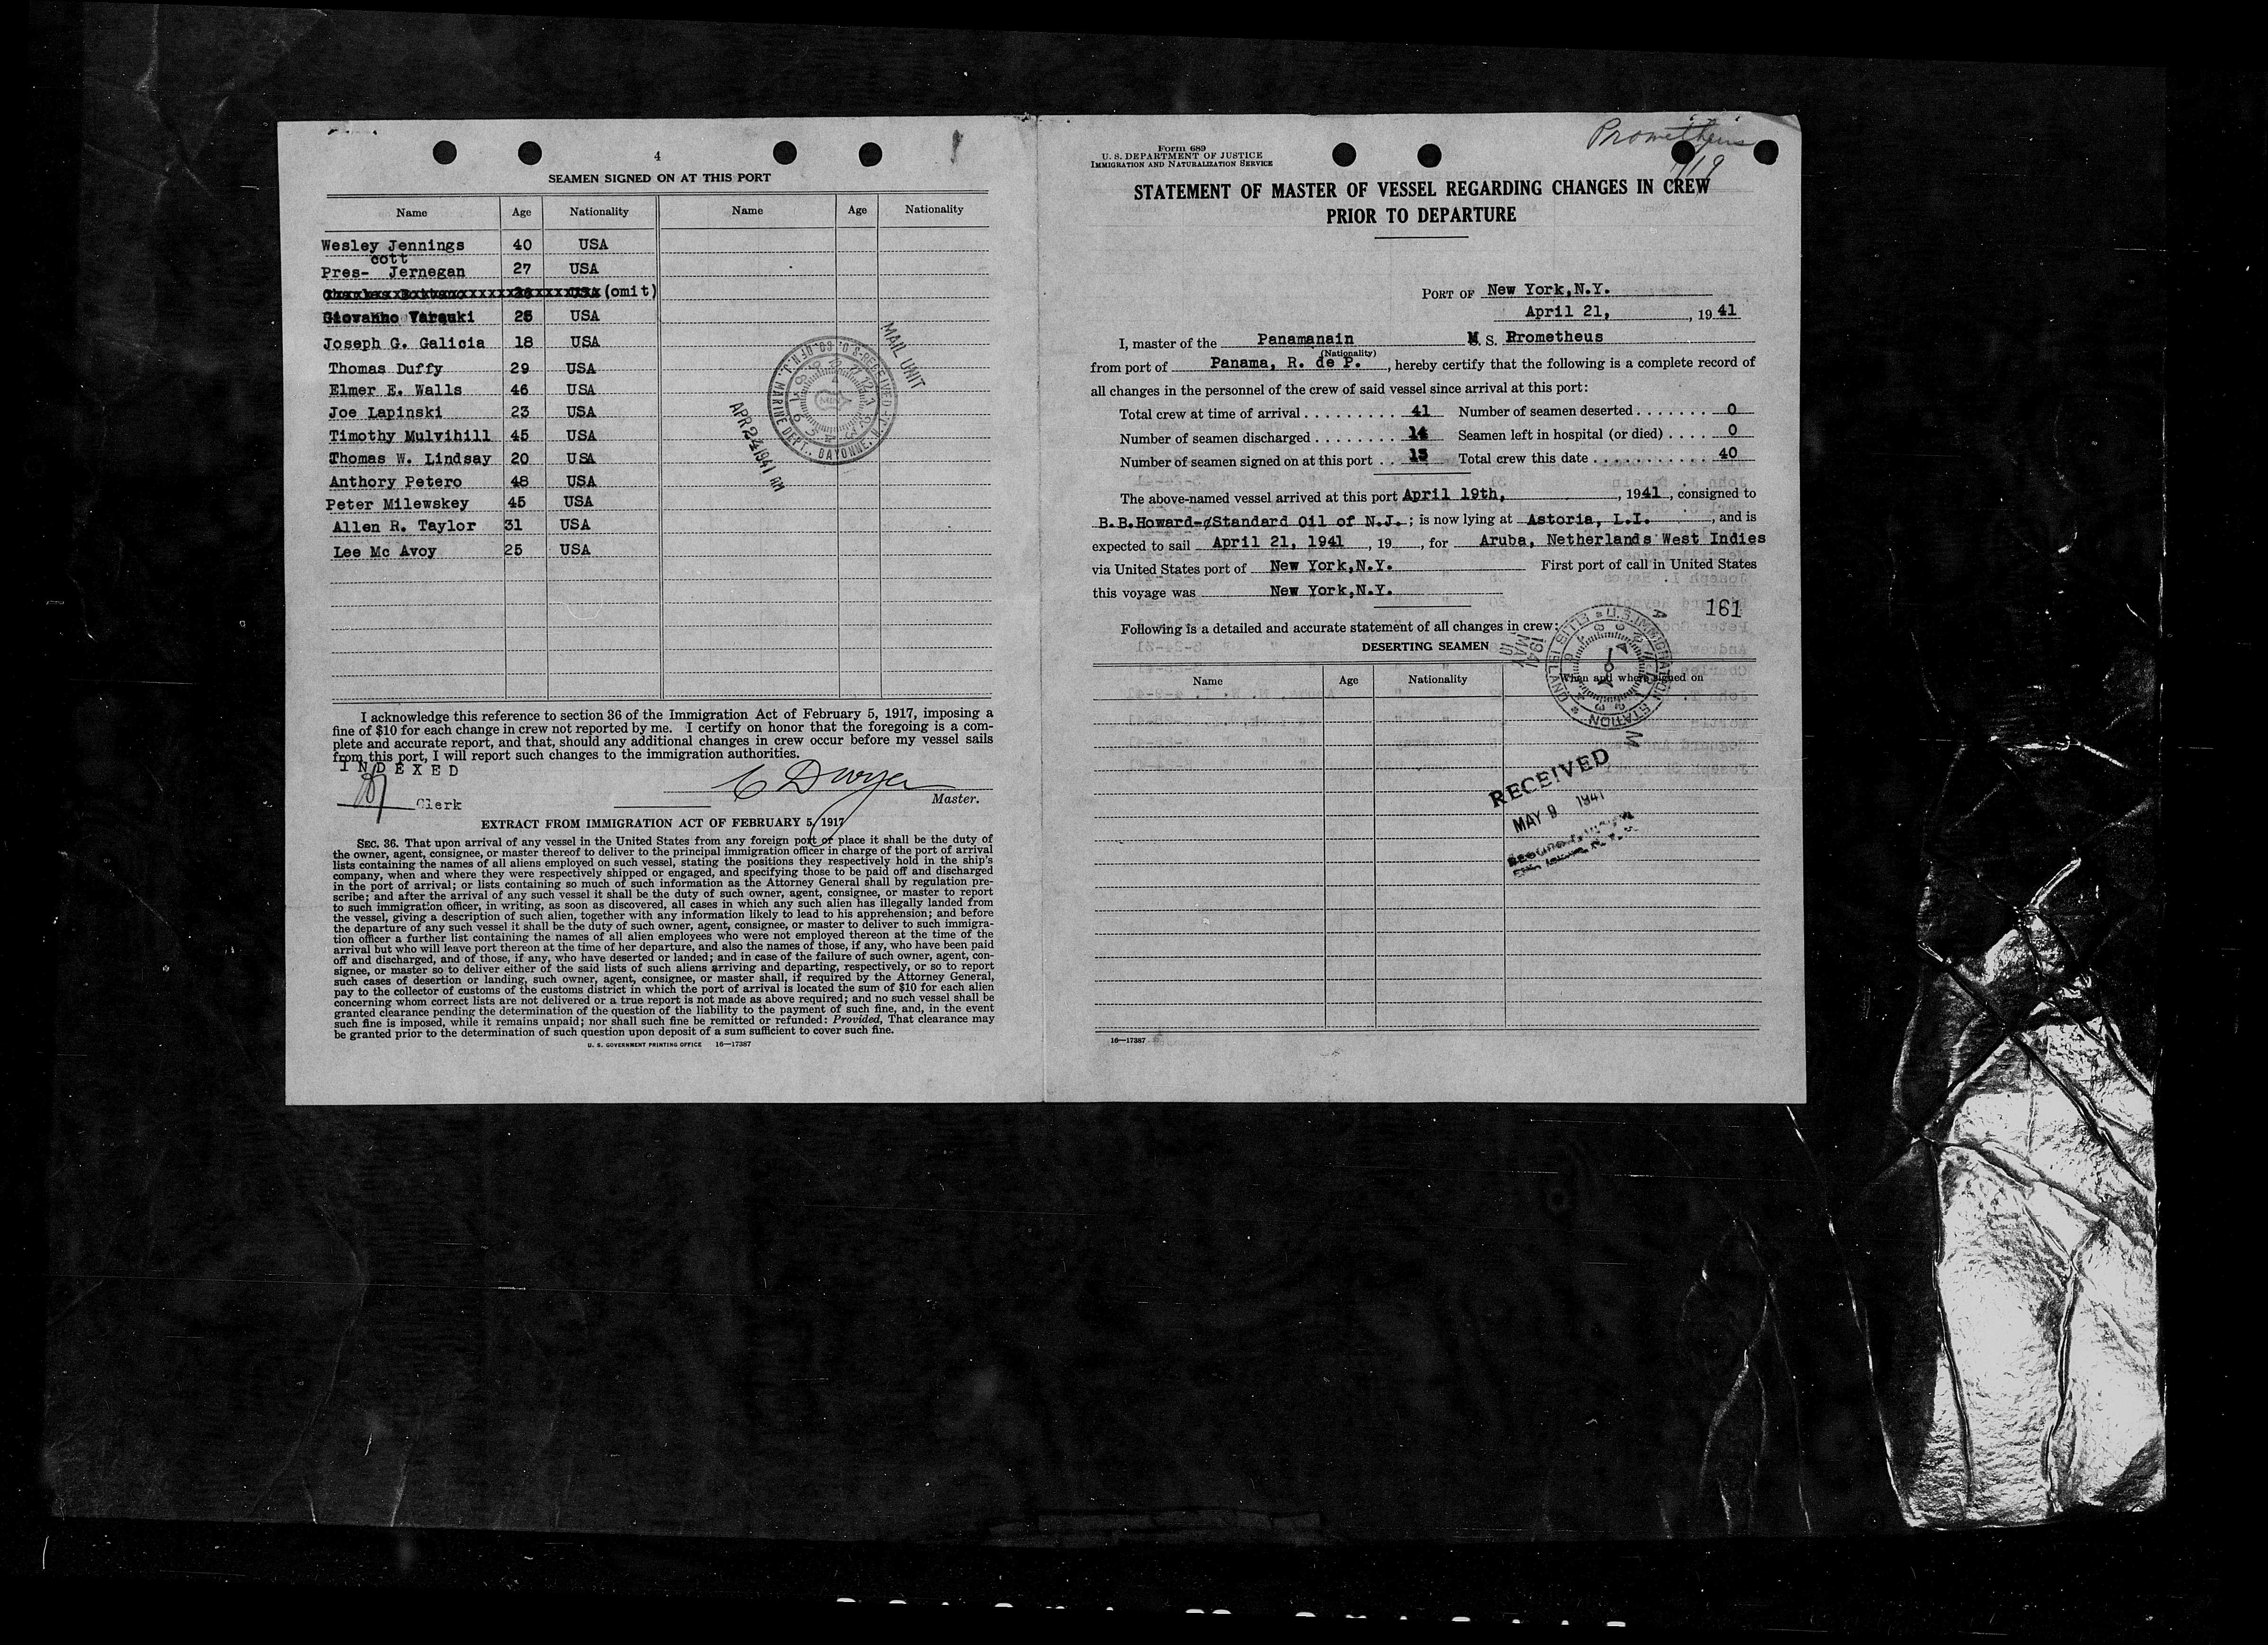 4
SEAMEN SIGNED ON AT THIS PORT
Name Age Nationality Name Age Nationality
Wesley Jennings 40 USA
cott
Pres- Jernegan 27 USA
USA (omit)
25 USA
Joseph G. Galicia 18 USA
Thomas Duffy 29 USA
Elmer E. Walls 46 USA
Joe Lapinski 23 USA
Timothy Mulvihill 45 USA
Thomas W. Lindsay 20 USA
Anthory Petero 48 USA
Peter Milewskey 45 USA
Allen R. Taylor 31 USA
Lee Mc Avoy 25 USA
MAIL UNIT
APR 24 1941 AM
MARINE DEPT., BAYONNE, N.J.
I acknowledge this reference to section 36 of the Immigration Act of February 5, 1917, imposing a
fine of $10 for each change in crew not reported by me. I certify on honor that the foregoing is a com-
plete and accurate report, and that, should any additional changes in crew occur before my vessel sails
from this port, I will report such changes to the immigration authorities.
INDEXED
Clerk
C Dwyer
Master.
EXTRACT FROM IMMIGRATION ACT OF FEBRUARY 5, 1917
SEC. 36. That upon arrival of any vessel in the United States from any foreign port or place it shall be the duty of
the owner, agent, consignee, or master thereof to deliver to the principal immigration officer in charge of the port of arrival
lists containing the names of all aliens employed on such vessel, stating the positions they respectively hold in the ship's
company, when and where they were respectively shipped or engaged, and specifying those to be paid off and discharged
in the port of arrival; or lists containing so much of such information as the Attorney General shall by regulation pre-
scribe; and after the arrival of any such vessel it shall be the duty of such owner, agent, consignee, or master to report
to such immigration officer, in writing, as soon as discovered, all cases in which any such alien has illegally landed from
the vessel, giving a description of such alien, together with any information likely to lead to his apprehension; and before
the departure of any such vessel it shall be the duty of such owner, agent, consignee, or master to deliver to such immigra-
tion officer a further list containing the names of all alien employees who were not employed thereon at the time of the
arrival but who will leave port thereon at the time of her departure, and also the names of those, if any, who have been paid
off and discharged, and of those, if any, who have deserted or landed; and in case of the failure of such owner, agent, con-
signee, or master so to deliver either of the said lists of such aliens arriving and departing, respectively, or so to report
such cases of desertion or landing, such owner, agent, consignee, or master shall, if required by the Attorney General,
pay to the collector of customs of the customs district in which the port of arrival is located the sum of $10 for each alien
concerning whom correct lists are not delivered or a true report is not made as above required; and no such vessel shall be
granted clearance pending the determination of the question of the liability to the payment of such fine, and, in the event
such fine is imposed, while it remains unpaid; nor shall such fine be remitted or refunded: Provided, That clearance may
be granted prior to the determination of such question upon deposit of a sum sufficient to cover such fine.
U. S. GOVERNMENT PRINTING OFFICE 16—17387
Prometheus
4/19
Form 689
U. S. DEPARTMENT OF JUSTICE
IMMIGRATION AND NATURALIZATION SERVICE
STATEMENT OF MASTER OF VESSEL REGARDING CHANGES IN CREW
PRIOR TO DEPARTURE
PORT OF New York,N.Y.
April 21, , 19 41
I, master of the Panamanain M. S. Prometheus
(Nationality)
from port of Panama, R. de P. , hereby certify that the following is a complete record of
all changes in the personnel of the crew of said vessel since arrival at this port:
Total crew at time of arrival . . . . . . . . . . 41 Number of seamen deserted . . . . . . . 0
Number of seamen discharged . . . . . . . . 14 Seamen left in hospital (or died) . . . . 0
Number of seamen signed on at this port . . 13 Total crew this date . . . . . . . . . . . 40
The above-named vessel arrived at this port April 19th, , 1941 , consigned to
B.B.Howard-Standard Oil of N.J. ; is now lying at Astoria, L.I. , and is
expected to sail April 21, 1941 , 19 , for Aruba, Netherlands West Indies
via United States port of New York,N.Y. First port of call in United States
this voyage was New York,N.Y.
161
Following is a detailed and accurate statement of all changes in crew:
DESERTING SEAMEN
Name Age Nationality When and where signed on
U.S. IMMIGRATION STATION ELLIS ISLAND
RECEIVED
MAY 9 1941
16—17387